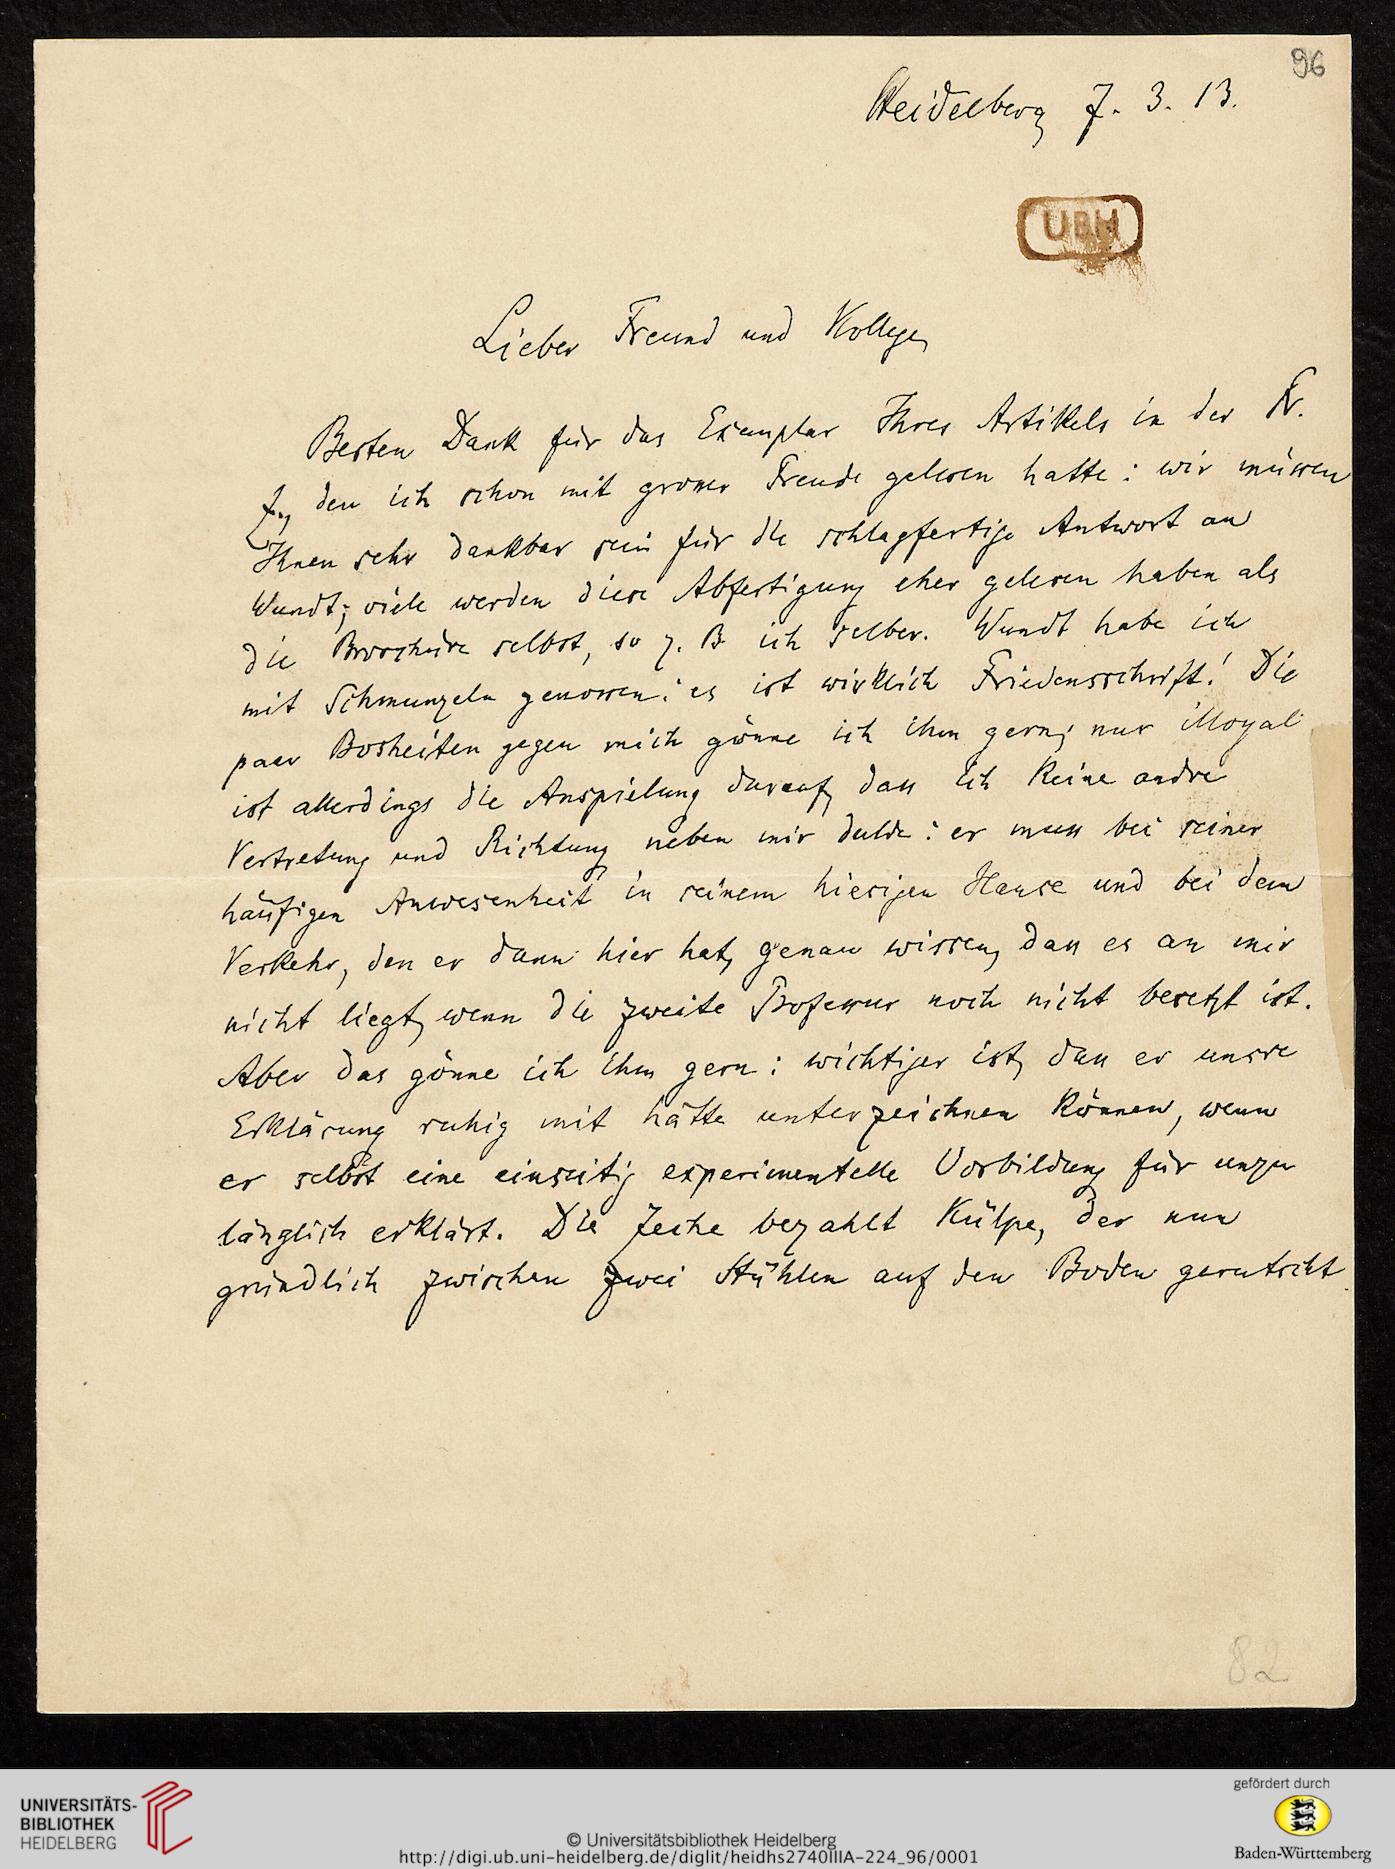 96
Heidelberg 7. 3. 13.
UBH
Lieber Freund und Kollege,
Besten Dank für das Exemplar Ihres Artikels in der Fr.
Z., den ich schon mit grosser Freude gelesen hatte: wir müssen
Ihnen sehr dankbar sein für die schlagfertige Antwort an
Wundt; viele werden diese Abfertigung eher gelesen haben als
die Broschüre selbst, so z. B. ich selber. Wundt habe ich
mit Schmunzeln genossen: es ist wirklich Friedensschrift! Die
paar Bosheiten gegen mich gönne ich ihm gern; nur illoyal
ist allerdings die Anspielung darauf, dass ich keine andre
Vertretung und Richtung neben mir dulde: er muss bei seiner
häufigen Anwesenheit in seinem hiesigen Hause und bei dem
Verkehr, den er dann hier hat, genau wissen, dass es an mir
nicht liegt, wenn die zweite Professur noch nicht besetzt ist.
Aber das gönne ich ihm gern: wichtiger ist, dass er unsre
Erklärung ruhig mit hätte unterzeichnen können, wenn
er selbst eine einseitig experimentelle Vorbildung für unzu
länglich erklärt. Die Zeche bezahlt Külpe, der nun
gründlich zwischen zwei Stühlen auf den Boden gerutscht
82
UNIVERSITÄTS-
BIBLIOTHEK
HEIDELBERG
© Universitätsbibliothek Heidelberg
http://digi.ub.uni-heidelberg.de/diglit/heidhs2740IIIA-224_96/0001
gefördert durch
Baden-Württemberg